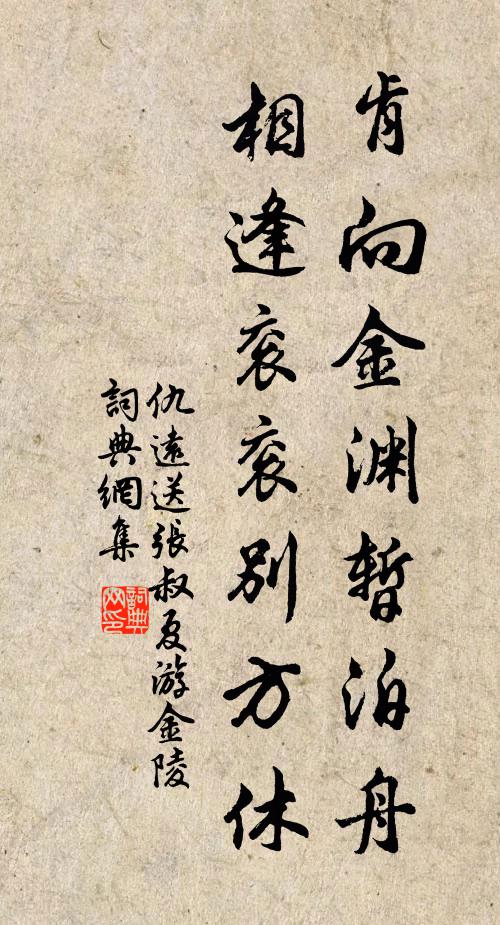 肯向金渊暫泊舟
相逢衮衮別方休
仇遠送張叔夏游金陵
詞典網集
詞典网印